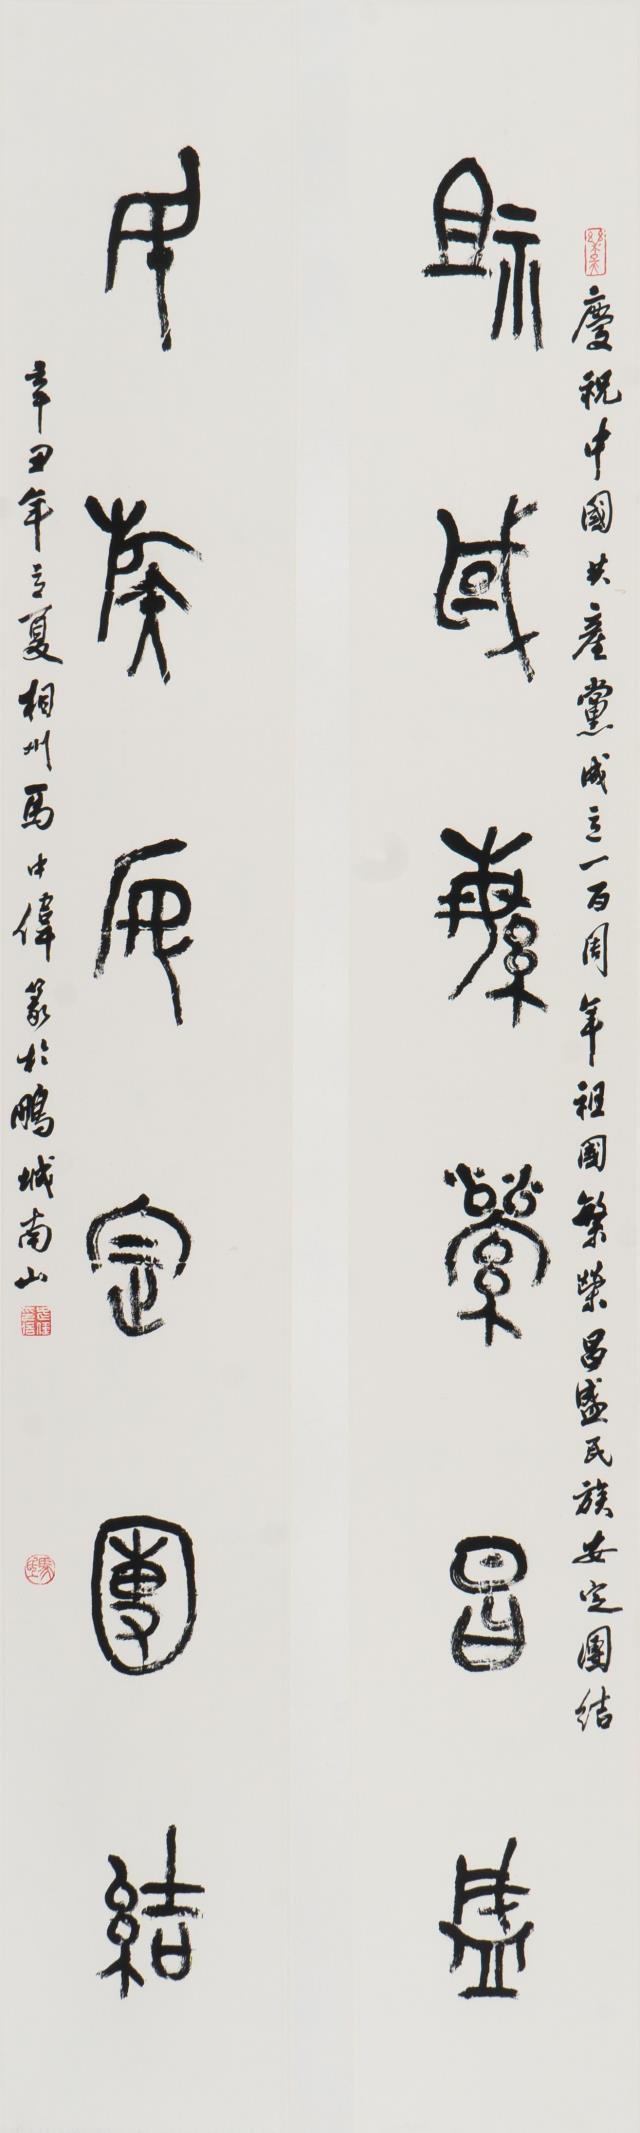 慶祝中國共產黨成立一百周年祖國繁榮昌盛民族安定團結
祖國繁榮昌盛
民族安定團結
辛丑年立夏相州馬中偉篆於鵬城南山